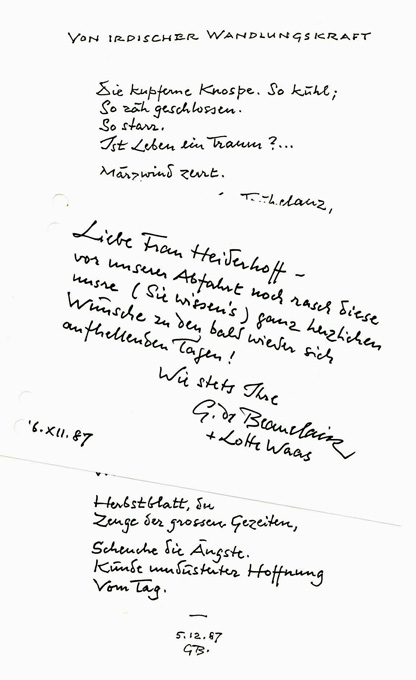 VON IRDISCHER WANDLUNGSKRAFT
Die kupferne Knospe. So kühl;
So zäh geschlossen.
So starr.
Ist Leben ein Traum?...
Märzwind zerrt.
Liebe Frau Heiderhoff –
vor unserer Abfahrt noch rasch diese
unsre (Sie wissen's) ganz herzlichen
Wünsche zu den bald wieder sich
aufhellenden Tagen!
Wie stets Ihre
G. de Beauclair
+ Lotte Waas
16.XII.87
Herbstblatt, du
Zeuge der grossen Gezeiten,
Scheuche die Ängste.
Künde umdüsterter Hoffnung
Vom Tag.
5.12.87
GB.